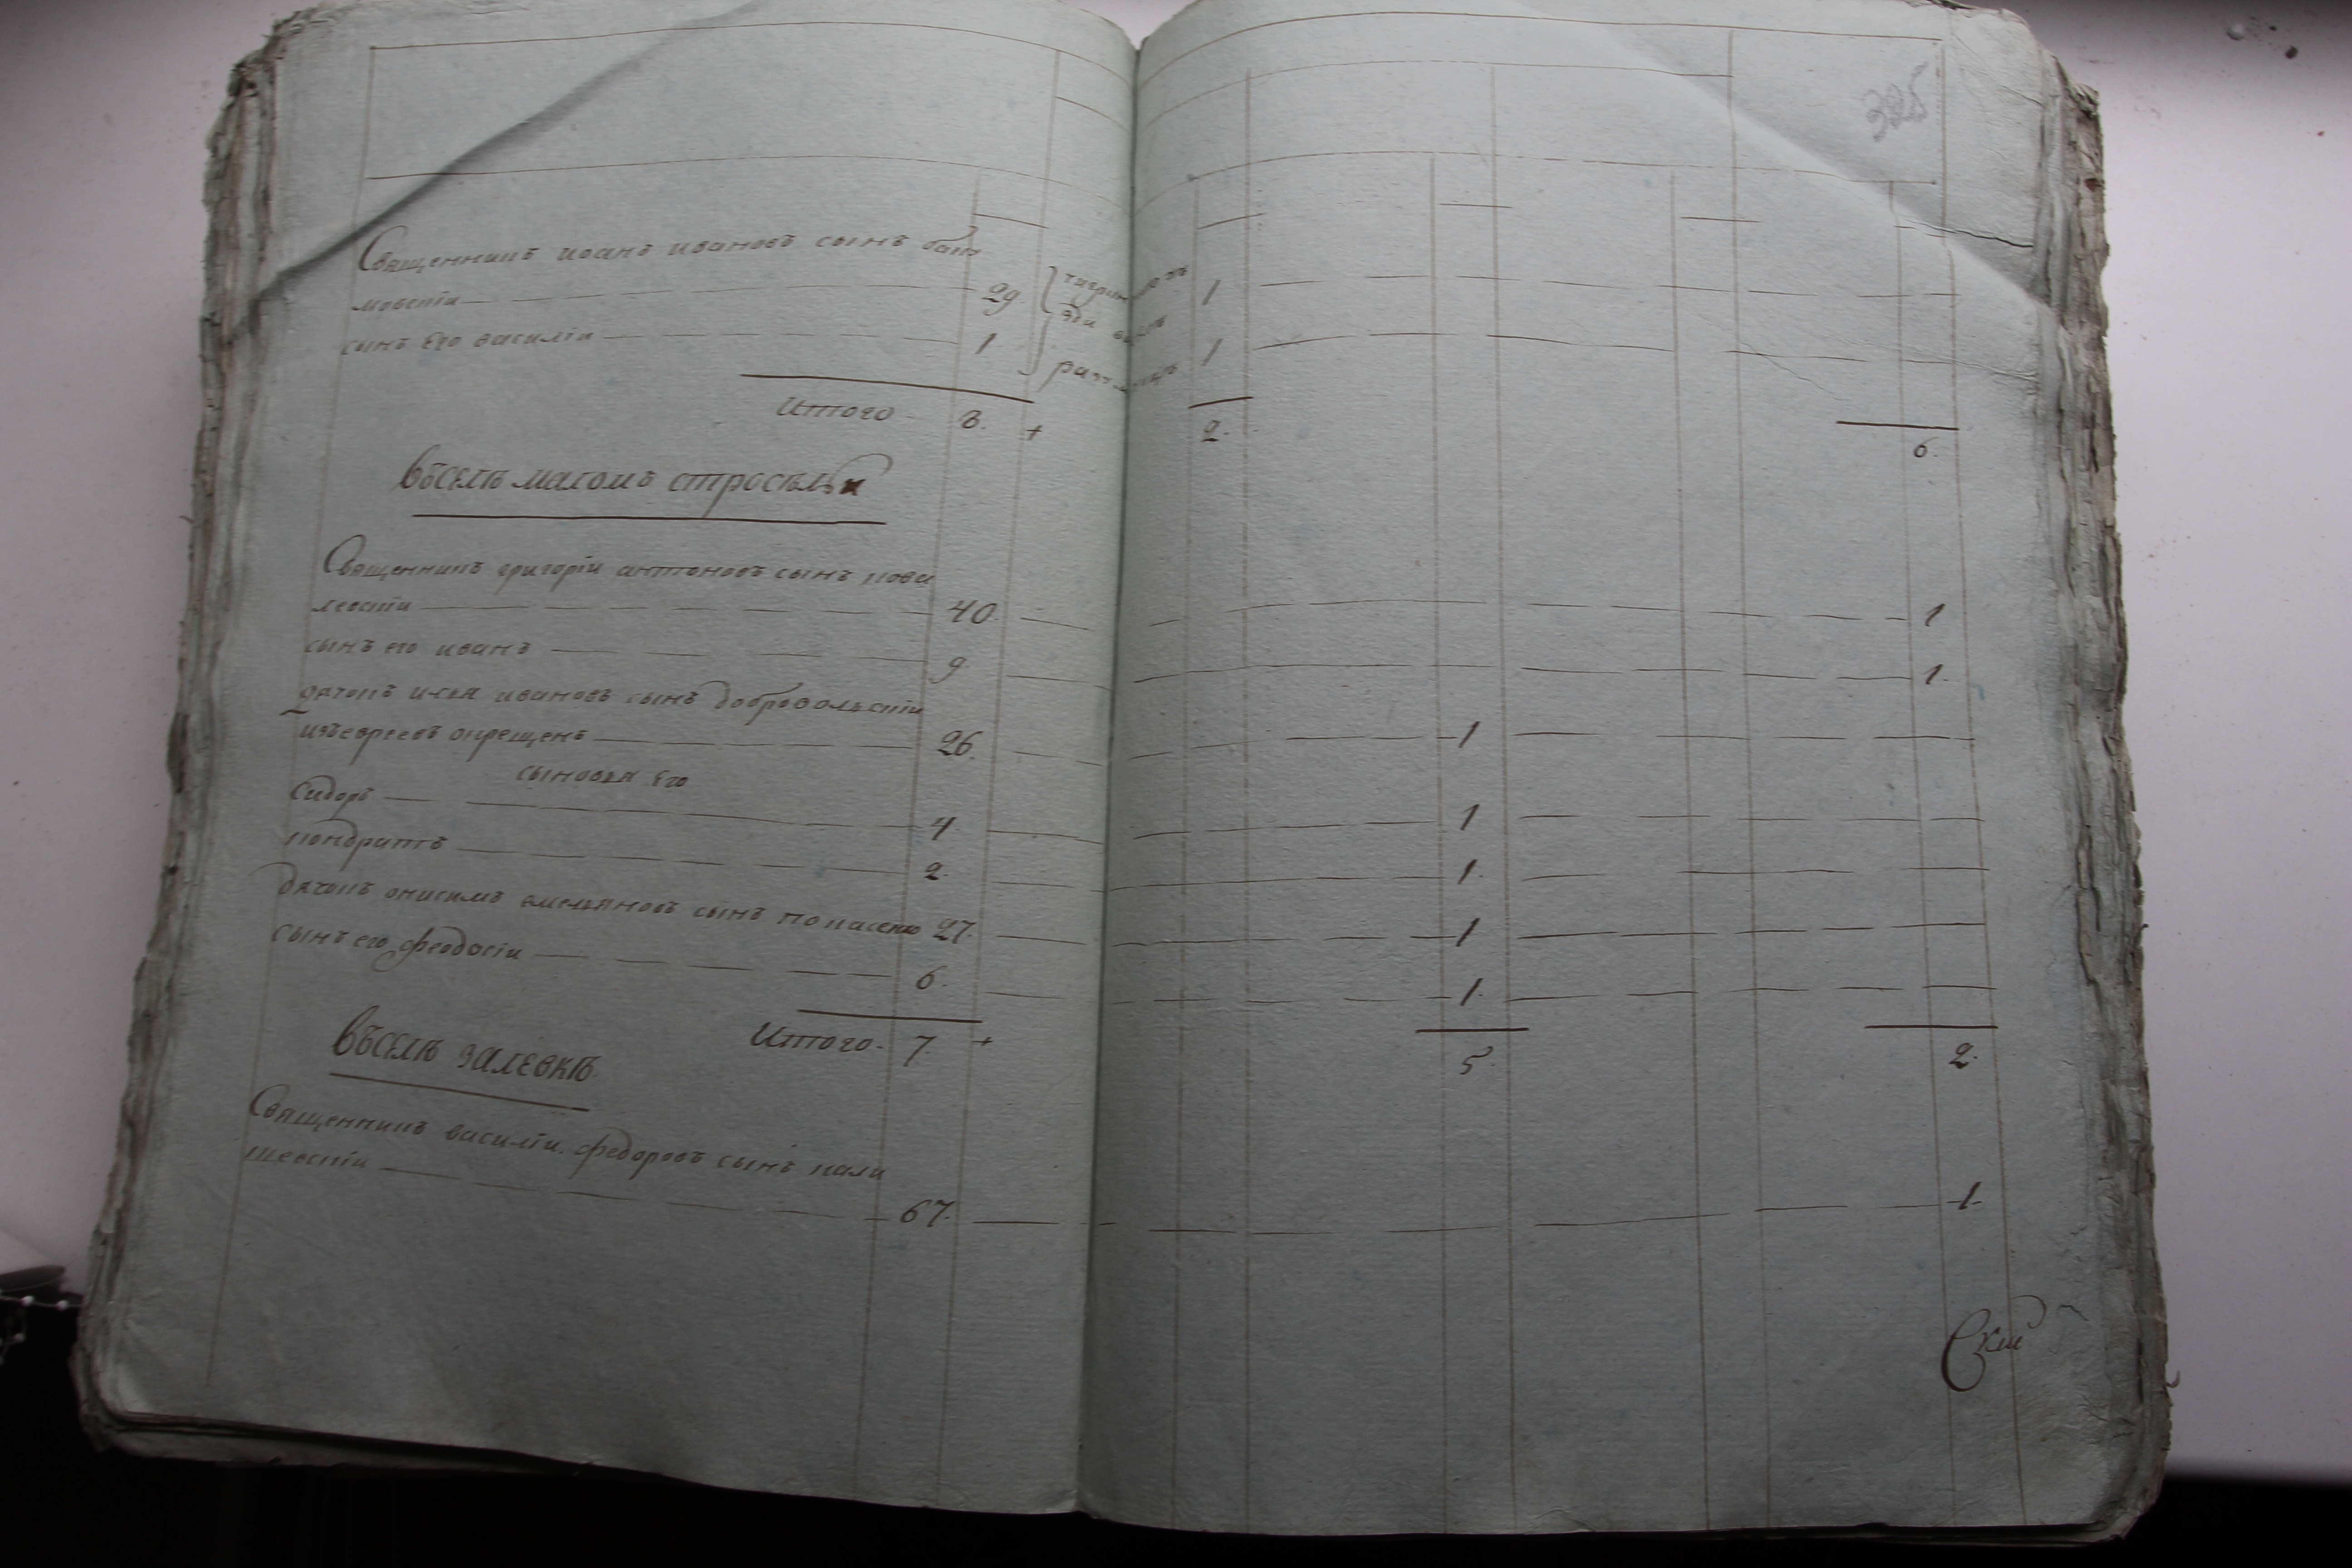 385
Священникъ иоанъ ивановъ сынъ
мовскїи 29 1
сынъ Его василїи 1 1
Итого 8. + 2. 6.
Въселѣ маломъ
Священникъ григорїи антоновъ сынъ кова
левскїи 40. 1
сынъ его иванъ 9. 1.
дячокъ илья ивановъ сынъ добровольскїи
изъевреевъ окрещенъ 26. 1
сыновья Его
Сидоръ 4. 1
кондратъ 2. 1.
дячокъ онисимъ емельяновъ сынъ 27. 1
сынъ его феодосїи 6. 1.
Итого 7. + 5. 2.
Въселѣ залевкѣ
Священникъ василїи федоровъ сынъ кали
шевскїи 67. 1.